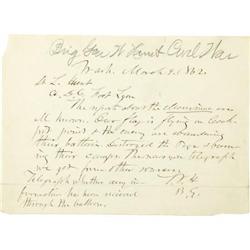 Brig Gen W Hunt Civil War
Wash. March 9. 1862.
Hunt
Fort Lyon
The report about the
is known. Our flag is flying on Cock
pit point & the enemy are abandoning
their batteries. Destroyed the Page & burn
ing their camps. telegraph
we get from other sources.
Telegraph whether any in
formation has been received
through the balloon.
B. G.